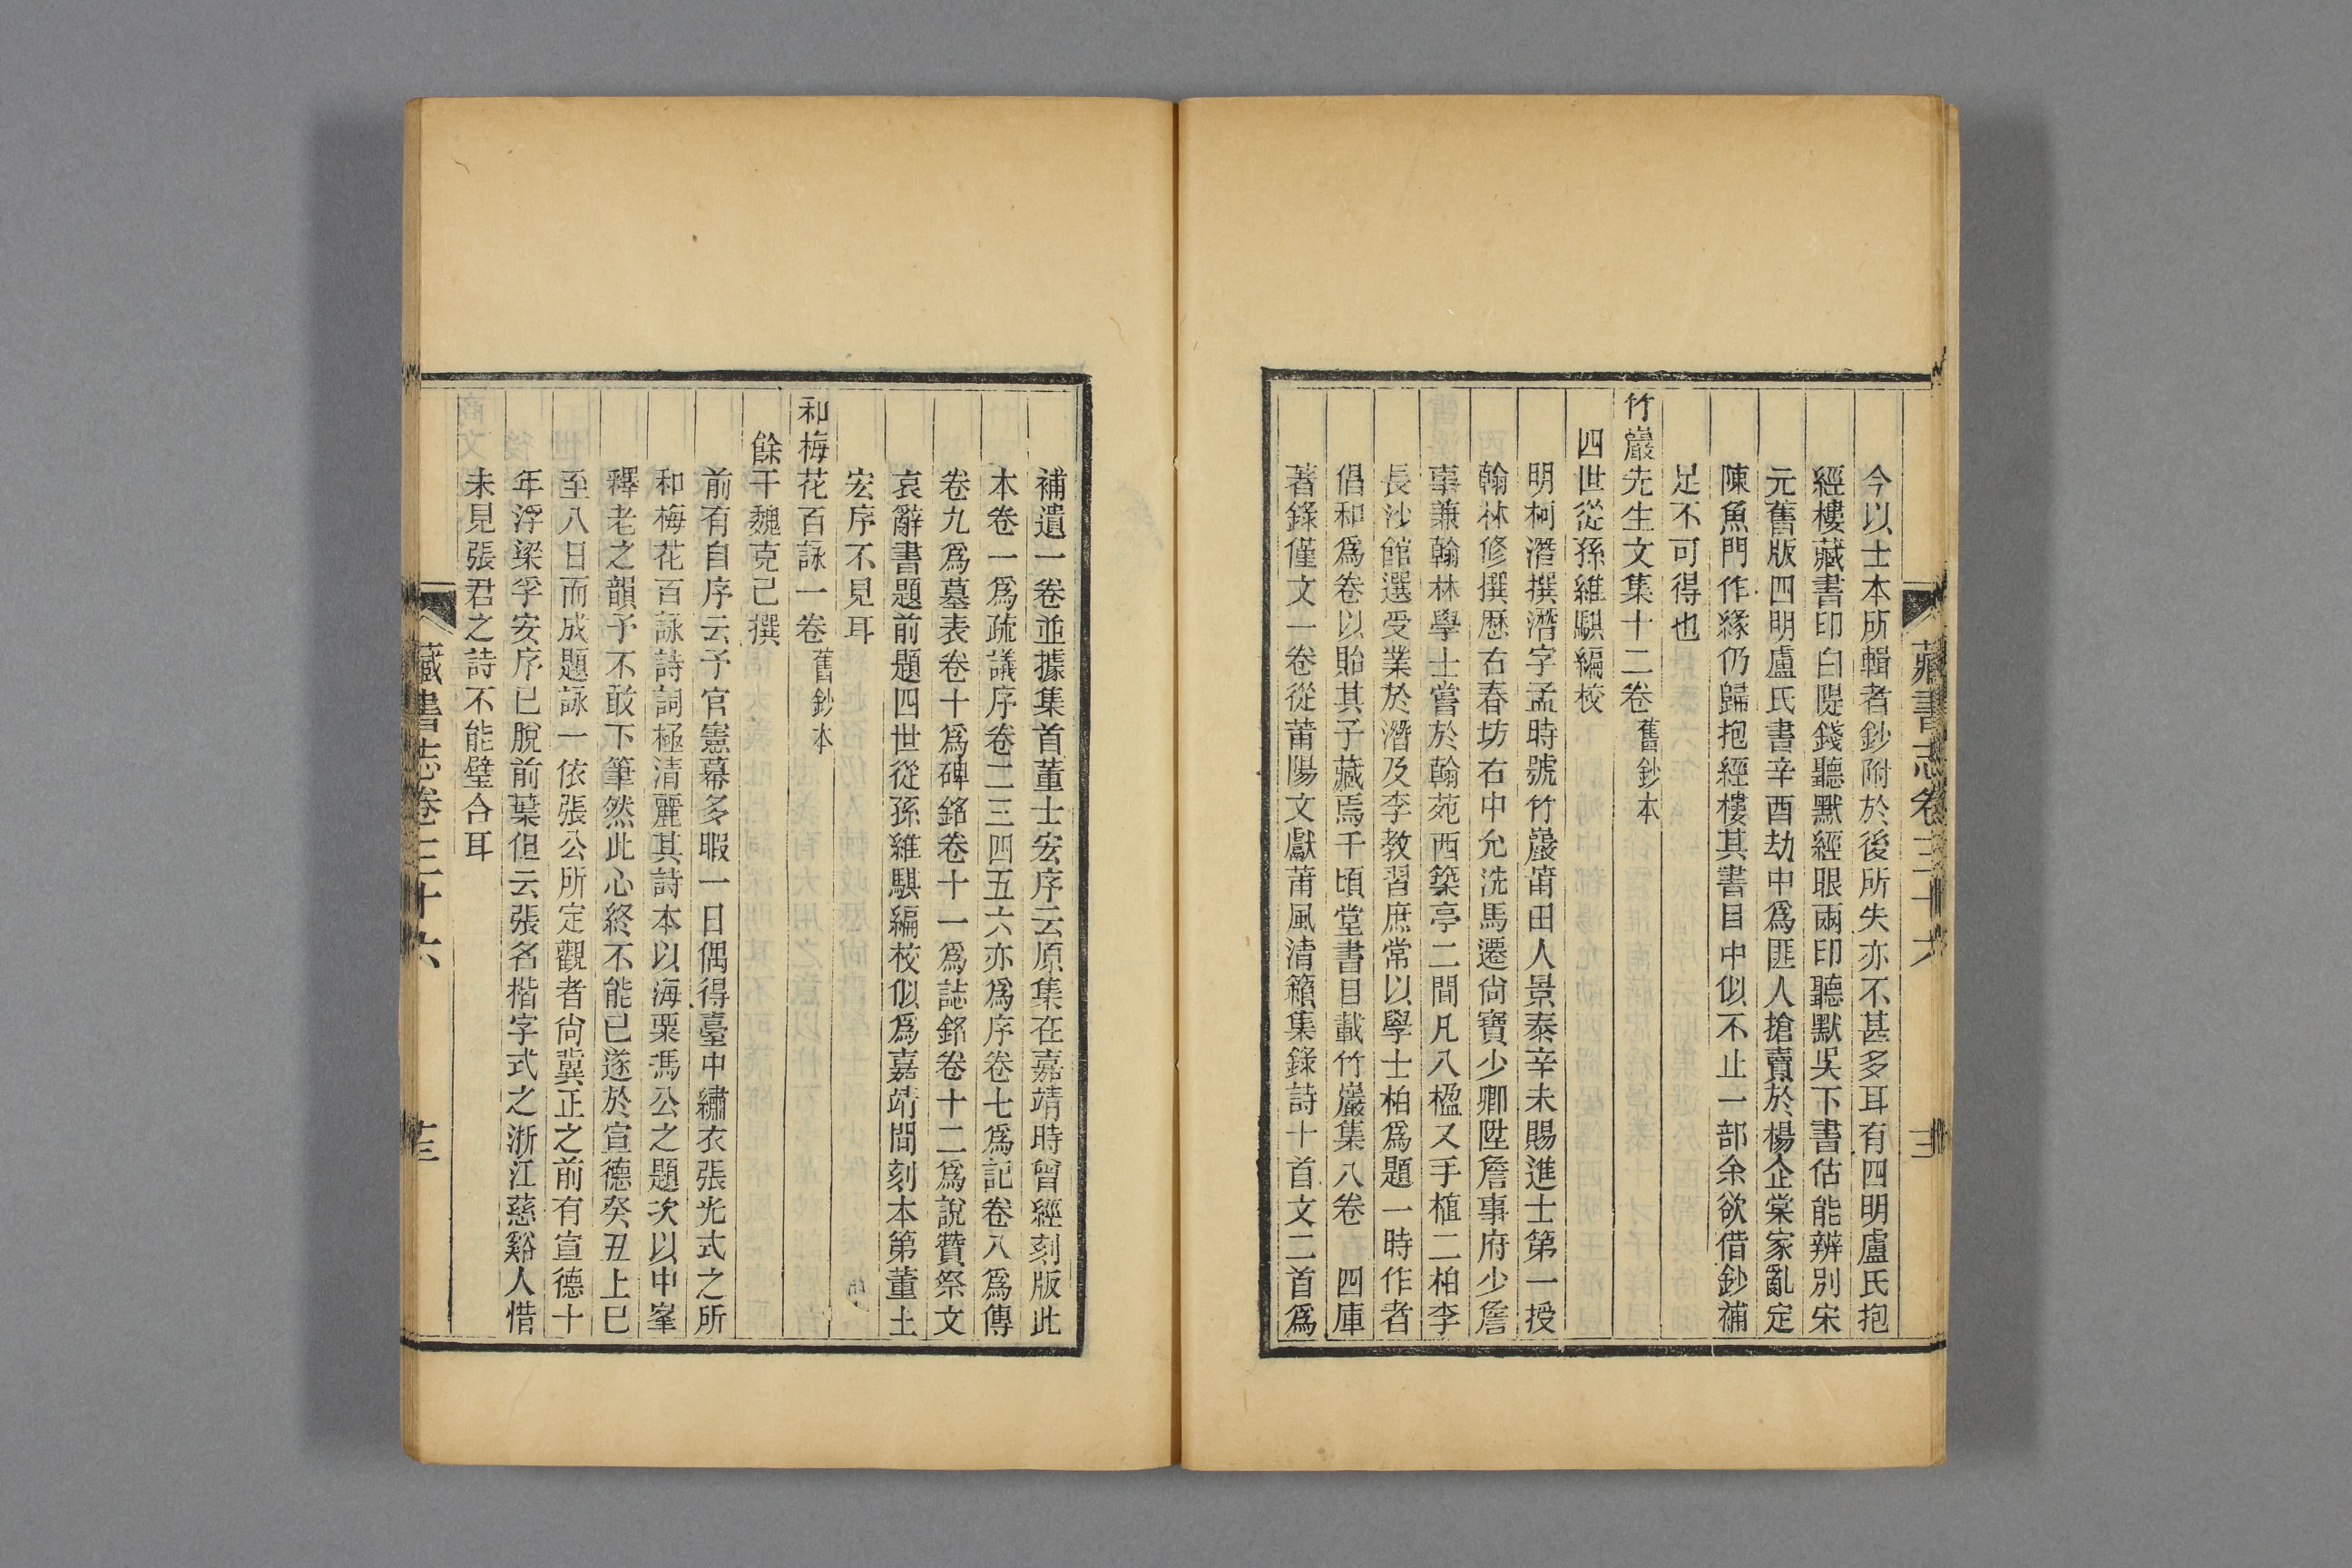 藏書志卷三十六
今以士本所輯者鈔附於後所失亦不甚多耳有四明盧氏抱
經樓藏書印白隄錢聽默經眼兩印聽默吳下書估能辨別宋
元舊版四明盧氏書辛酉劫中爲匪人搶賣於楊企棠家亂定
陳魚門作緣仍歸抱經樓其書目中似不止一部余欲借鈔補
足不可得也
竹巖先生文集十二卷舊鈔本
四世從孫維騏編校
明柯潛撰潛字孟時號竹巖莆田人景泰辛未賜進士第一授
翰林修撰歷右春坊右中允洗馬遷尙寶少卿陞詹事府少詹
事兼翰林學士嘗於翰苑西築亭二間凡八楹又手植二柏李
長沙館選受業於潛及李教習庶常以學士柏爲題一時作者
倡和爲卷以貽其子藏焉千頃堂書目載竹巖集八卷 四庫
著錄僅文一卷從莆陽文獻莆風清籟集錄詩十首文二首爲
補遺一卷並據集首董士宏序云原集在嘉靖時曾經刻版此
本卷一爲疏議序卷二三四五六亦爲序卷七爲記卷八爲傳
卷九爲墓表卷十爲碑銘卷十一爲誌銘卷十二爲說贊祭文
哀辭書題前題四世從孫維騏編校似爲嘉靖間刻本第董士
宏序不見耳
和梅花百詠一卷舊鈔本
餘干魏克己撰
前有自序云予官憲幕多暇一日偶得臺中繡衣張光式之所
和梅花百詠詩詞極清麗其詩本以海粟馮公之題次以中峯
釋老之韻予不敢下筆然此心終不能已遂於宣德癸丑上巳
至八日而成題詠一依張公所定觀者尙冀正之前有宣德十
年浮梁孚安序已脫前葉但云張名楷字式之浙江慈谿人惜
未見張君之詩不能璧合耳
藏書志卷三十六